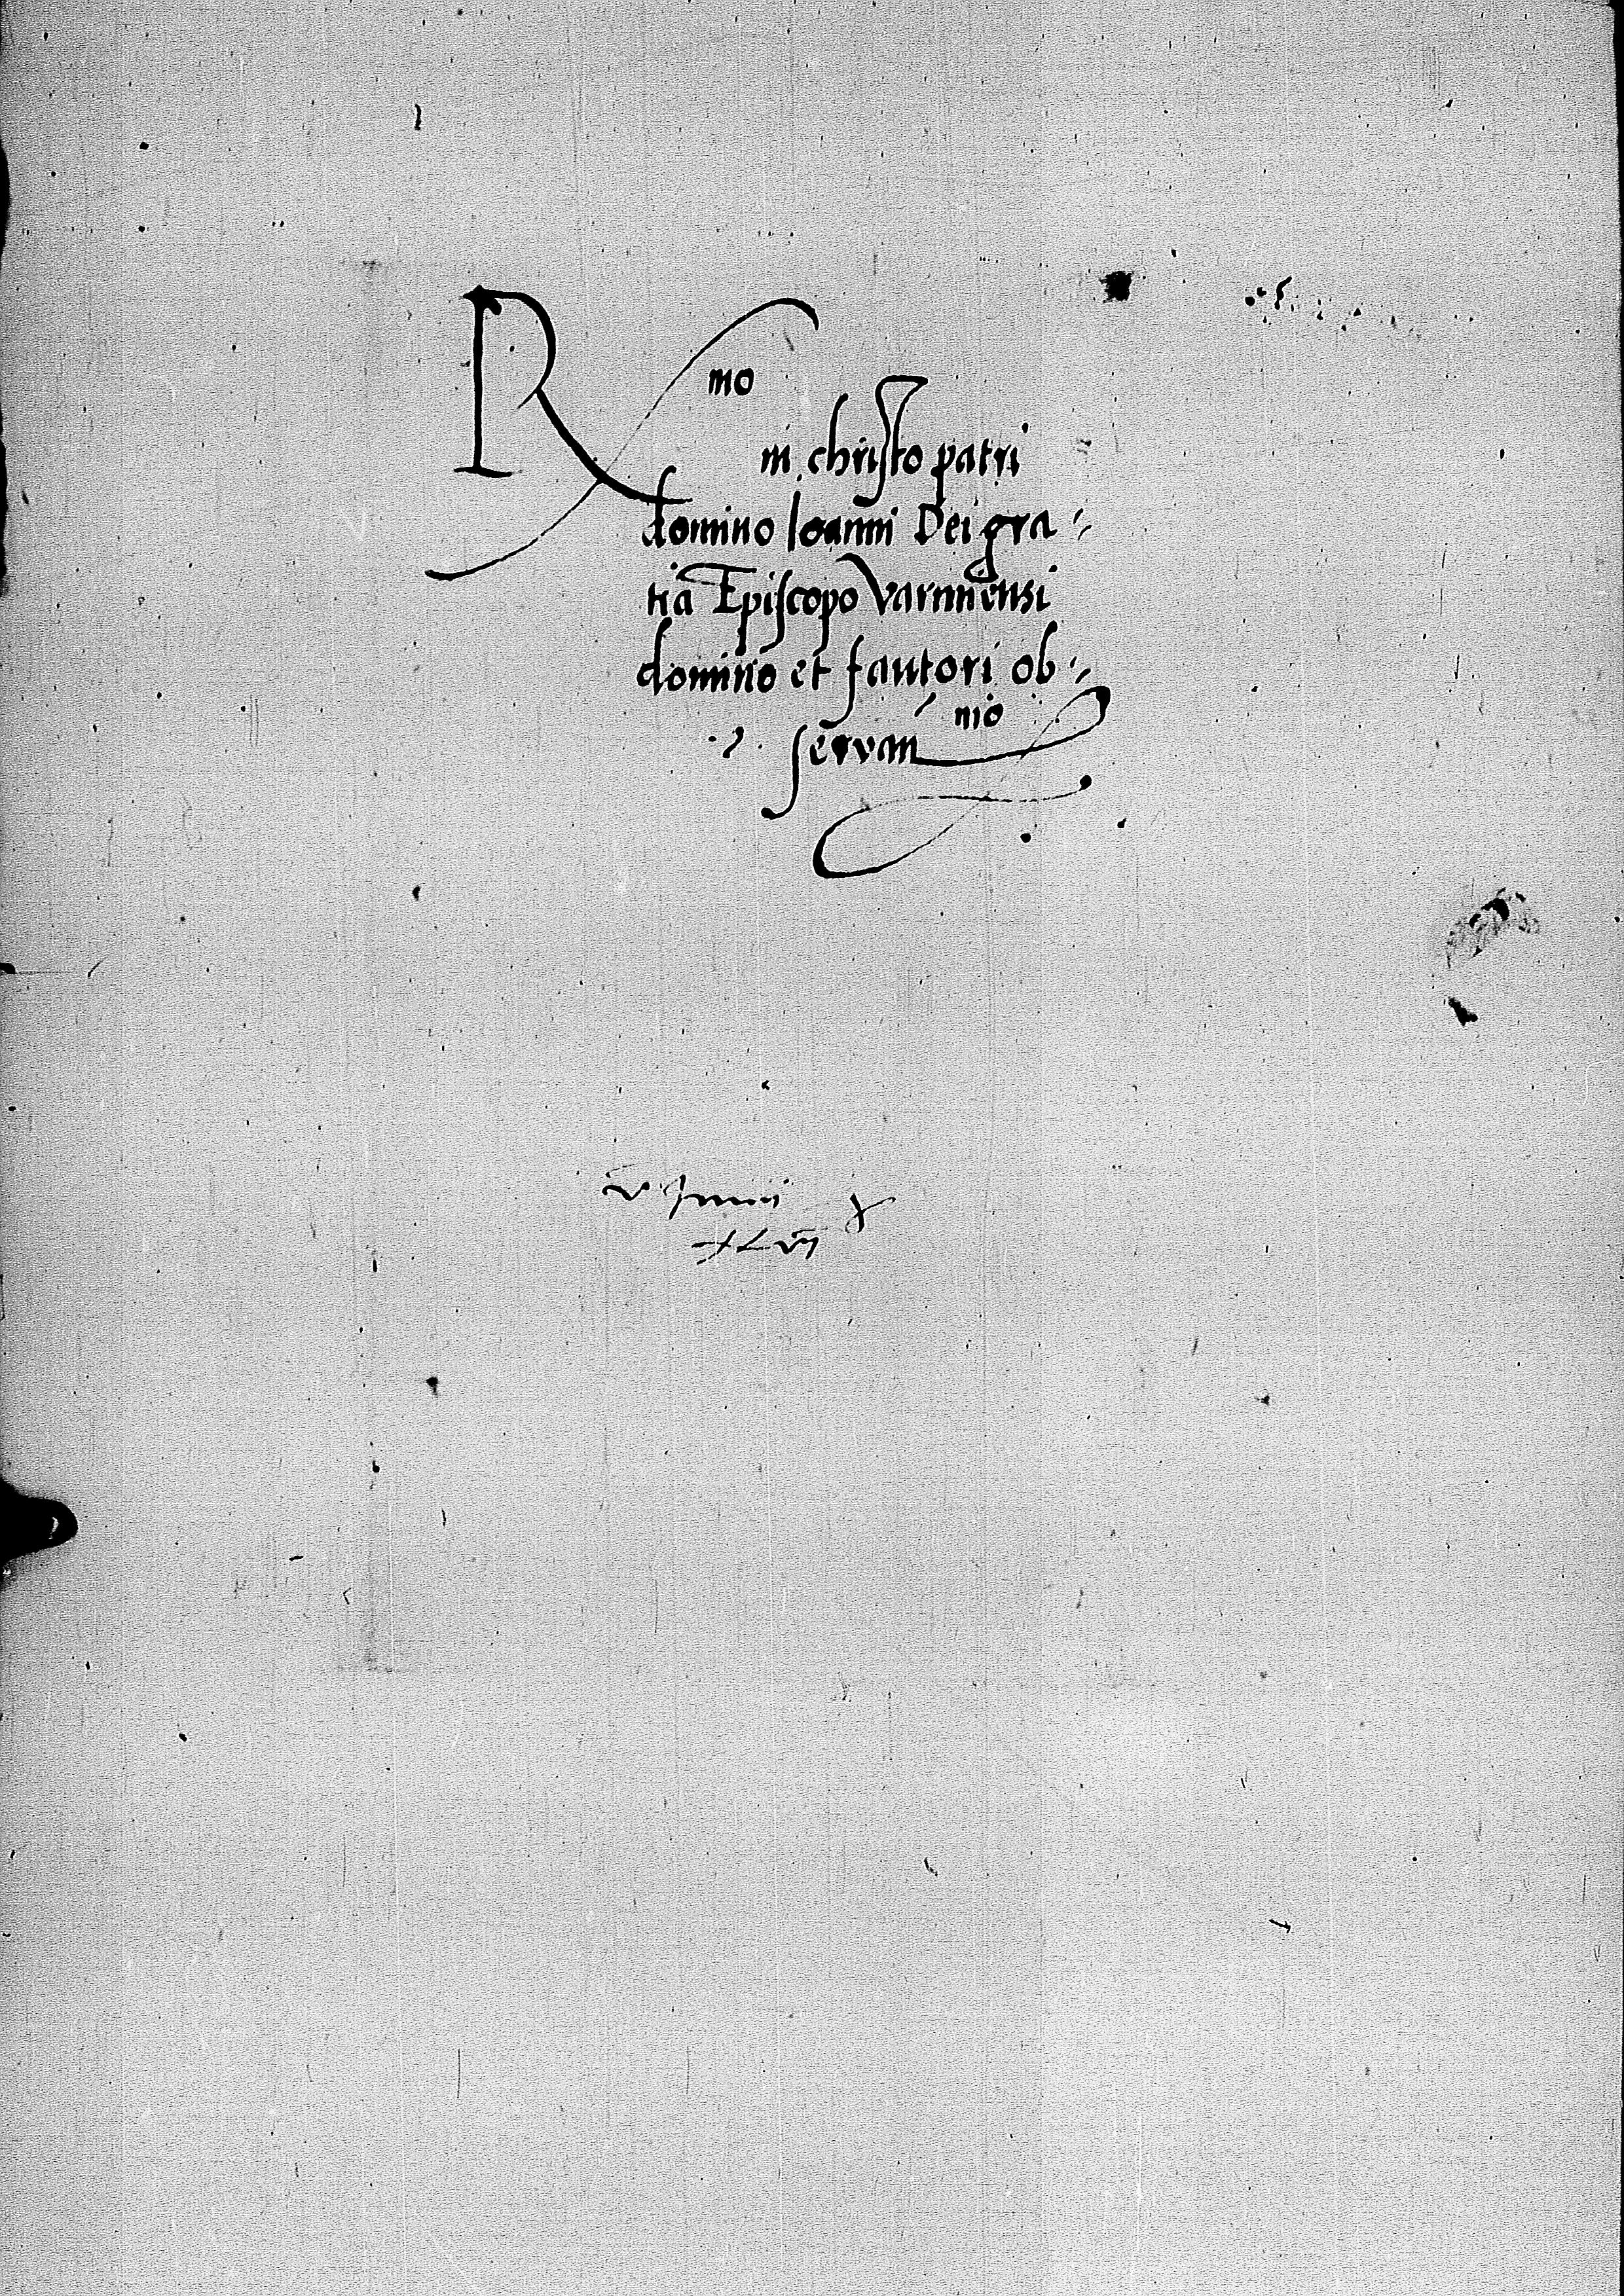 Rmo
in christo patri
domino Ioanni Dei gra
tia Episcopo Varmiensi
domino et fautori ob
servanmo
v Junii
XLVII